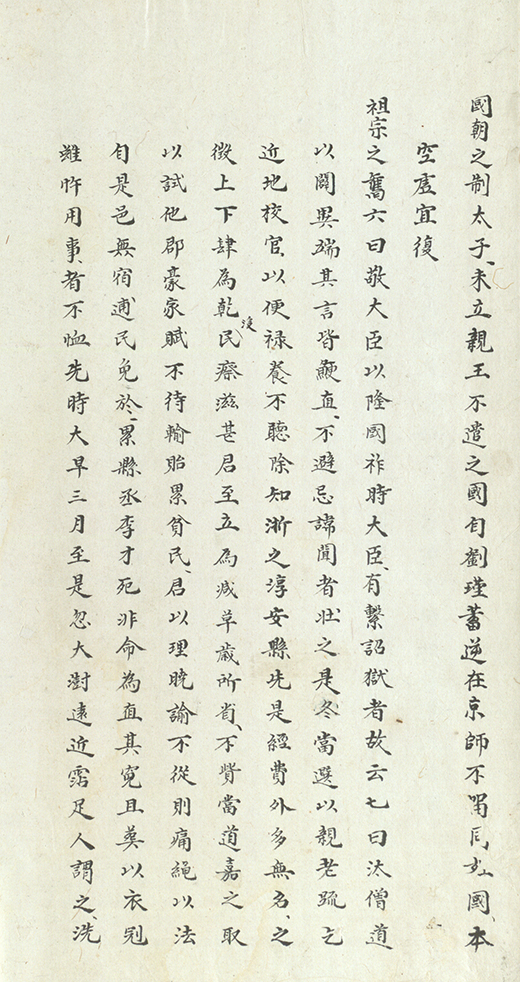 國朝之制太子未立親王不遣之國自劉瑾蓄逆在京師不留同姓國本
空虛宜復
祖宗之舊六曰敬大臣以隆國祚時大臣有繫詔獄者故云七曰汰僧道
以闢異端其言皆鯁直不避忌諱聞者壯之是冬當選以親老疏乞
近地校官以便祿養不聽除知浙之淳安縣先是經費外多無名之
徵上下肆為乾沒民瘵滋甚君至立為減草歲所省不貲當道嘉之取
以試他郡豪家賦不待輸貽累貧民君以理曉諭不從則痛繩以法
自是邑無宿逋民免於累縣丞李才死非命為直其冤且葬以衣冠
雖忤用事者不恤先時大旱三月至是忽大澍遠近霑足人謂之洗